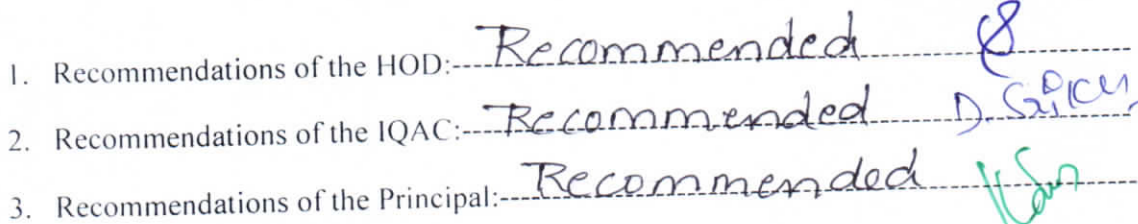 1. Recommendations of the HOD:----Recommended
2. Recommendations of the IQAC:----Recommended D.
3. Recommendations of the Principal:----Recommended